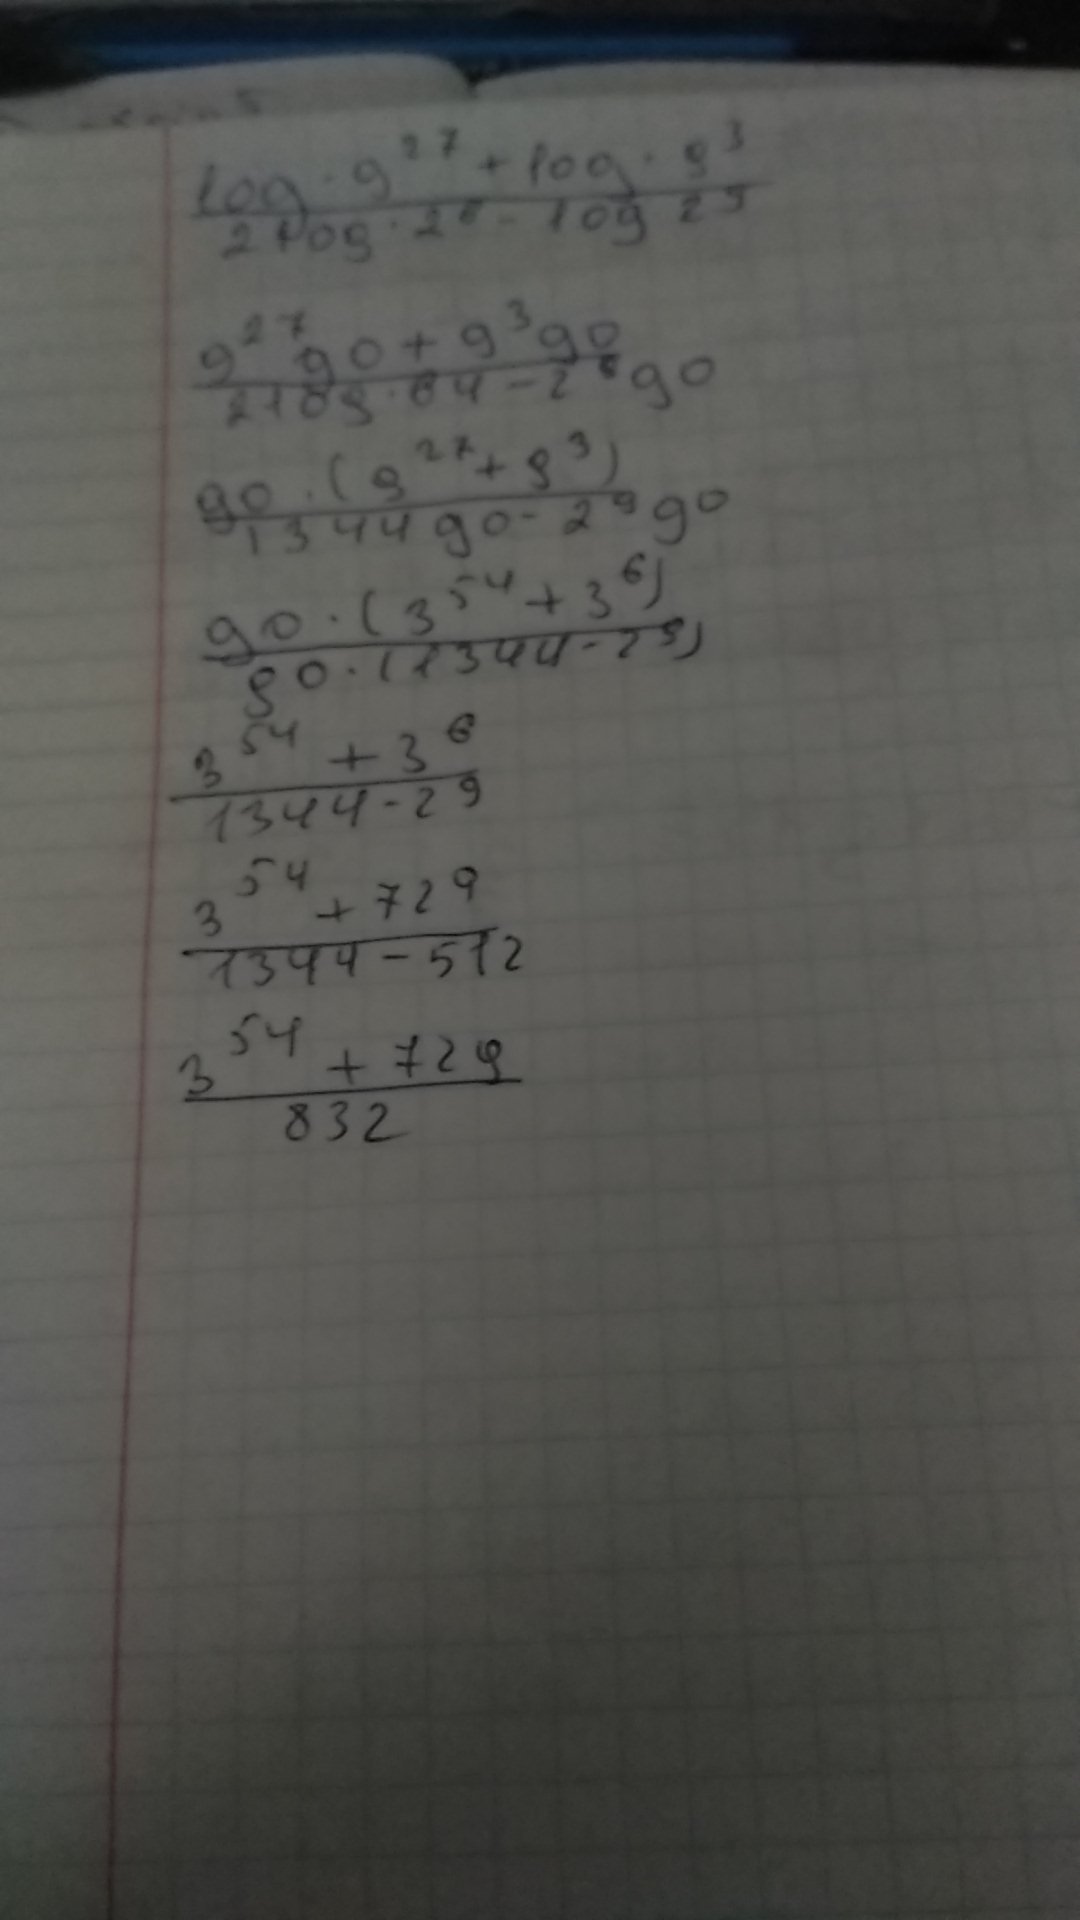 log · 9^27 + log · 9^3
2log · 2^6 - log 2^9
9^27 go + 9^3 go
210g · 64 - 2^9 go
go · (9^27 + 9^3)
1344 go - 2^9 go
go · (3^54 + 3^6)
go · (1344 - 2^9)
3^54 + 3^6
1344 - 2^9
3^54 + 729
1344 - 512
3^54 + 729
832